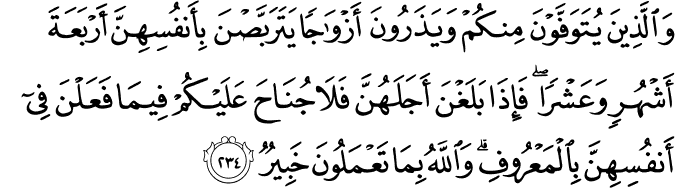 وَٱلَّذِينَ يُتَوَفَّوْنَ مِنكُمْ وَيَذَرُونَ أَزْوَٰجًا يَتَرَبَّصْنَ بِأَنفُسِهِنَّ أَرْبَعَةَ
أَشْهُرٍ وَعَشْرًا ۖ فَإِذَا بَلَغْنَ أَجَلَهُنَّ فَلَا جُنَاحَ عَلَيْكُمْ فِيمَا فَعَلْنَ فِىٓ
أَنفُسِهِنَّ بِٱلْمَعْرُوفِ ۗ وَٱللَّهُ بِمَا تَعْمَلُونَ خَبِيرٌ ٢٣٤